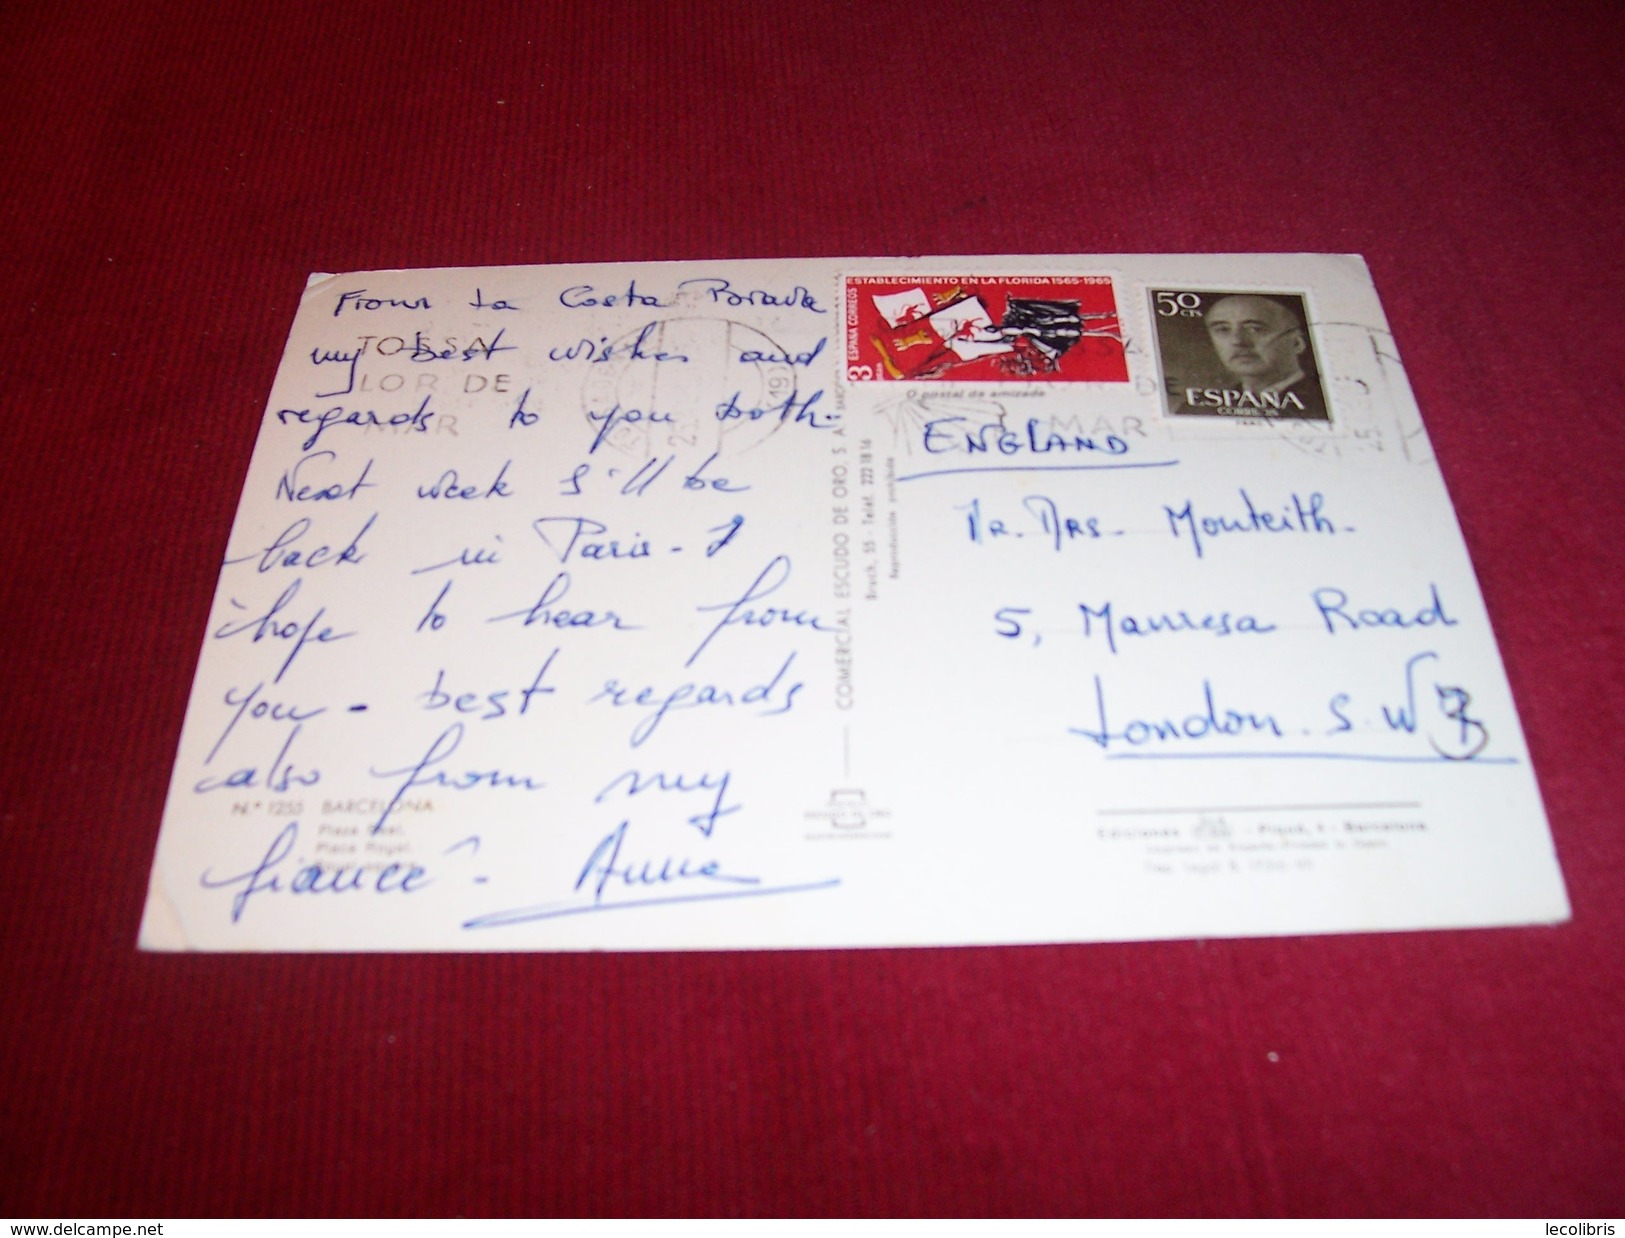 From La Costa Brava
my best wishes and
regards to you both.
Next week I'll be
back in Paris - I
hope to hear from
you - best regards
also from my
fiancé - Anna
TOSSA
LOR DE
MAR
Nº 1255 BARCELONA
Plaza Real.
Place Royal.
COMERCIAL ESCUDO DE ORO, S. A.
Bruch, 55 - Telef. 222 18 16
Reproducción prohibida
ESTABLECIMIENTO EN LA FLORIDA 1565-1965
ESPAÑA CORREOS
3
50 CTS
ESPAÑA
CORREOS
postal de amizade
MAR
ENGLAND
Mr. Mrs. Monteith.
5, Manresa Road
London. S.W 3
Ediciones - Piqué, - Barcelona
www.delcampe.net
lecolibris